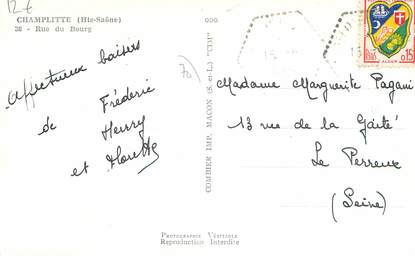 12 €
CHAMPLITTE (Hte-Saône)
38 - Rue du Bourg
Affectueux baisers
de Frédéric
Henry
et
70
COMBIER IMP. MACON (S.-et-L.) "CIM"
Madame Marguerite Pagani
13 rue de la Gaité
Le Perreux
(Seine)
ALGER
0,15
PHOTOGRAPHIE VÉRITABLE
Reproduction Interdite